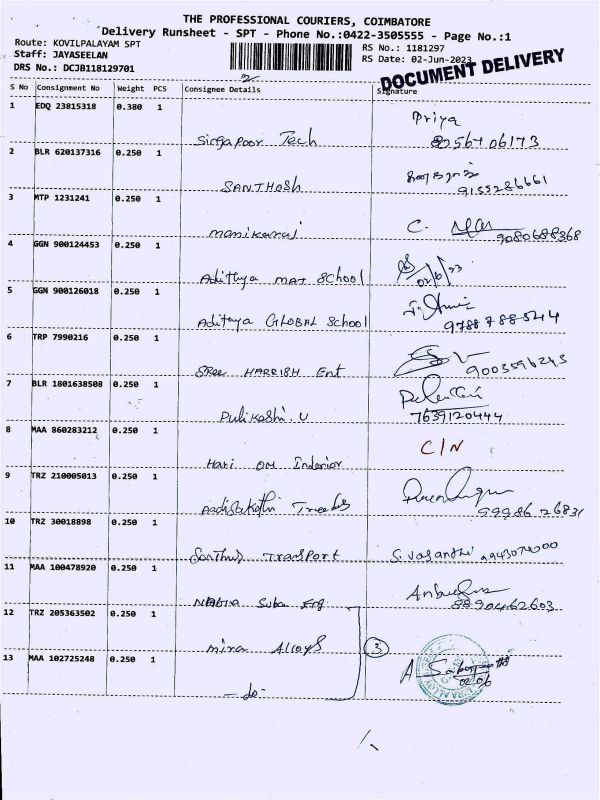 THE PROFESSIONAL COURIERS, COIMBATORE
Delivery Runsheet - SPT - Phone No.:0422-3505555 - Page No.:1
Route: KOVILPALAYAM SPT
RS No.: 1181297
Staff: JAYASEELAN
RS Date: 02-Jun-2023
DRS No.: DCJB118129701
DOCUMENT DELIVERY
S No Consignment No Weight PCS Consignee Details Signature
1 EDQ 23815318 0.380 1
Priya
Singapoor Tech
2 BLR 620137316 0.250 1
SANTHOSH 9155286661
3 MTP 1231241 0.250 1
manikaraj 9080688368
4 GGN 900124453 0.250 1
Adithya MAT School 02/6/23
5 GGN 900126018 0.250 1
Aditya GLOBAL School 9788788544
6 TRP 7990216 0.250 1
SREE HARRISH Ent 9003596243
7 BLR 1801638508 0.250 1
Pulikeshi. U 7639120444
8 MAA 860283212 0.250 1
C/N
Hari OM Inderior
9 TRZ 210005013 0.250 1
99986 26831
10 TRZ 30018898 0.250 1
Transport S. Vasanthi
11 MAA 100478920 0.250 1
Suba Eng 8890462603
12 TRZ 205363502 0.250 1
Mira Alloys 3
13 MAA 102725248 0.250 1
- do - 02/06